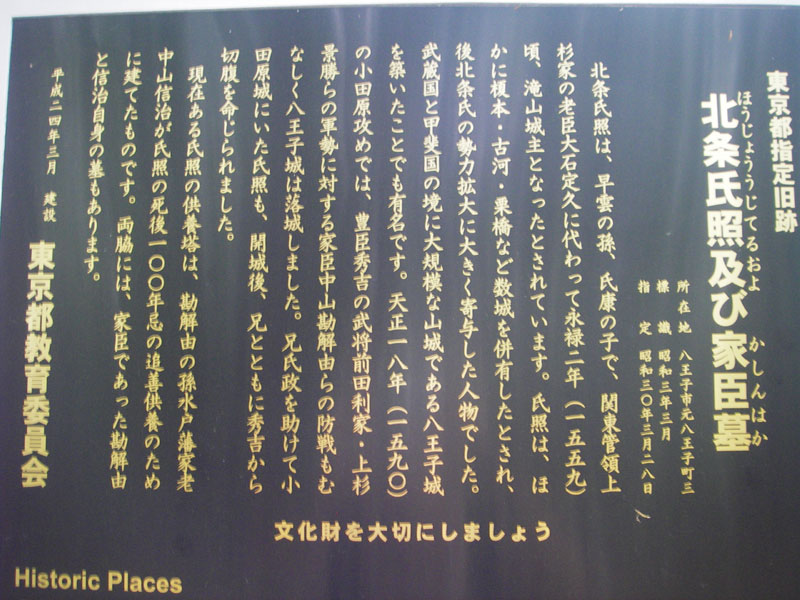 東京都指定旧跡
ほうじょううじてるおよ かしんはか
北条氏照及び家臣墓
所在地 八王子市元八王子町三
標識 昭和三年三月
指定 昭和三〇年三月二八日
北条氏照は、早雲の孫、氏康の子で、関東管領上
杉家の老臣大石定久に代わって永禄二年（一五五九）
頃、滝山城主となったとされています。氏照は、ほ
かに榎本・古河・栗橋など数城を併有したとされ、
後北条氏の勢力拡大に大きく寄与した人物でした。
武蔵国と甲斐国の境に大規模な山城である八王子城
を築いたことでも有名です。天正一八年（一五九〇）
の小田原攻めでは、豊臣秀吉の武将前田利家・上杉
景勝らの軍勢に対する家臣中山勘解由らの防戦もむ
なしく八王子城は落城しました。兄氏政を助けて小
田原城にいた氏照も、開城後、兄とともに秀吉から
切腹を命じられました。
現在ある氏照の供養塔は、勘解由の孫水戸藩家老
中山信治が氏照の死後一〇〇年忌の追善供養のため
に建てたものです。両脇には、家臣であった勘解由
と信治自身の墓もあります。
平成二四年三月 建設
東京都教育委員会
文化財を大切にしましょう
Historic Places